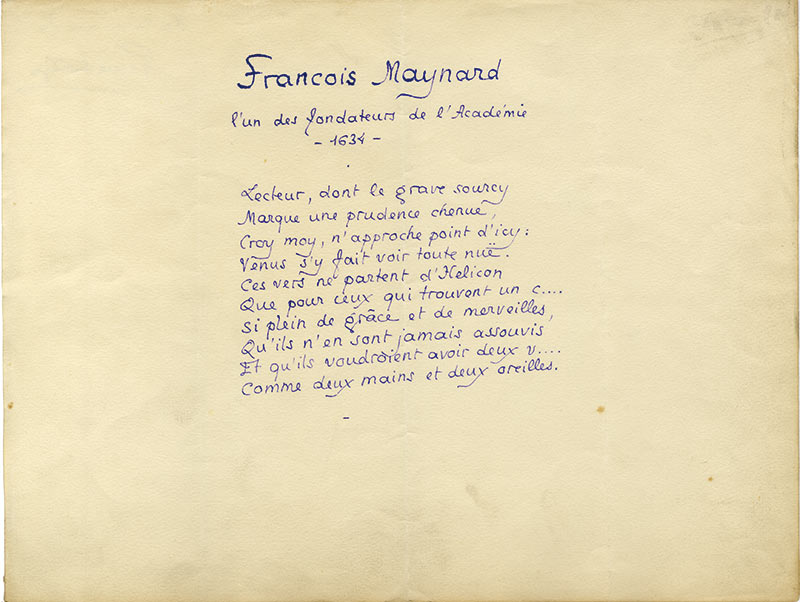 Francois Maynard
l'un des fondateurs de l'Académie
- 1634 -
Lecteur, dont le grave sourcy
Marque une prudence chenuë,
Croy moy, n'approche point d'icy:
Vénus s'y fait voir toute nuë.
Ces vers ne partent d'Helicon
Que pour ceux qui trouvont un c....
Si plein de grâce et de merveilles,
Qu'ils n'en sont jamais assouvis
Et qu'ils voudroient avoir deux v....
Comme deux mains et deux oreilles.
-